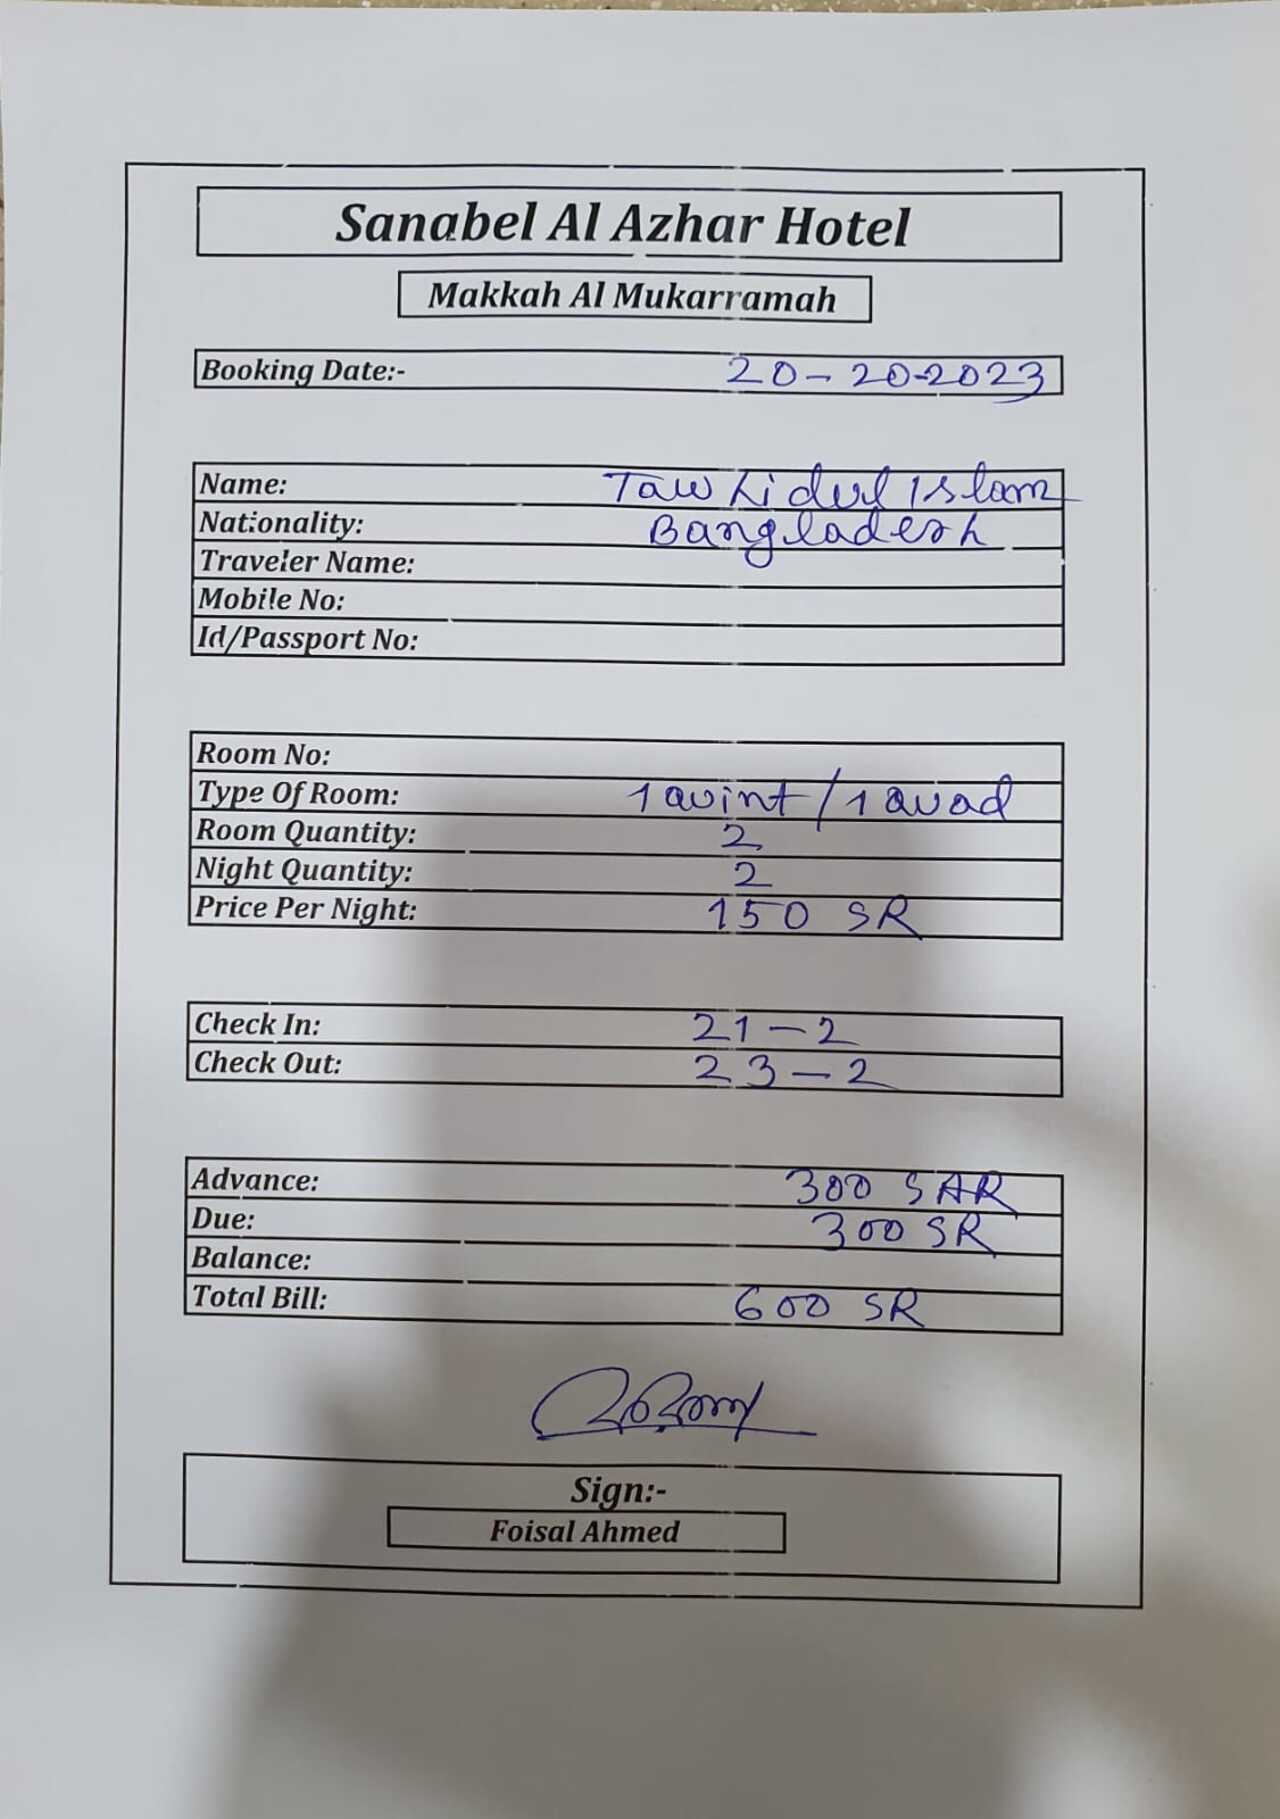 Sanabel Al Azhar Hotel
Makkah Al Mukarramah
Booking Date:- 20-20-2023
Name: Tawhidul Islam
Nationality: Bangladesh
Traveler Name:
Mobile No:
Id/Passport No:
Room No:
Type Of Room: 1 quint / 1 quad
Room Quantity: 2
Night Quantity: 2
Price Per Night: 150 SR
Check In: 21-2
Check Out: 23-2
Advance: 300 SAR
Due: 300 SR
Balance:
Total Bill: 600 SR
Sign:-
Foisal Ahmed